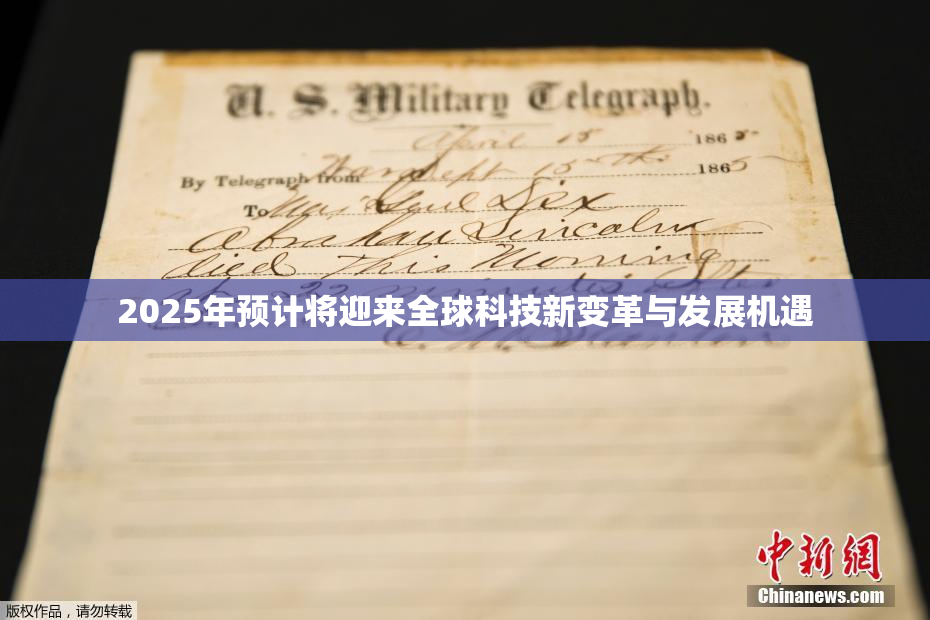 U. S. Military Telegraph.
April 15 1865
By Telegraph from War Dept 15th 1865
To Maj Genl Dix
Abraham Lincoln
died This Morning
at 22 minutes after
2025年预计将迎来全球科技新变革与发展机遇
E. M. Stanton
中新網
Chinanews.com
版权作品,请勿转载